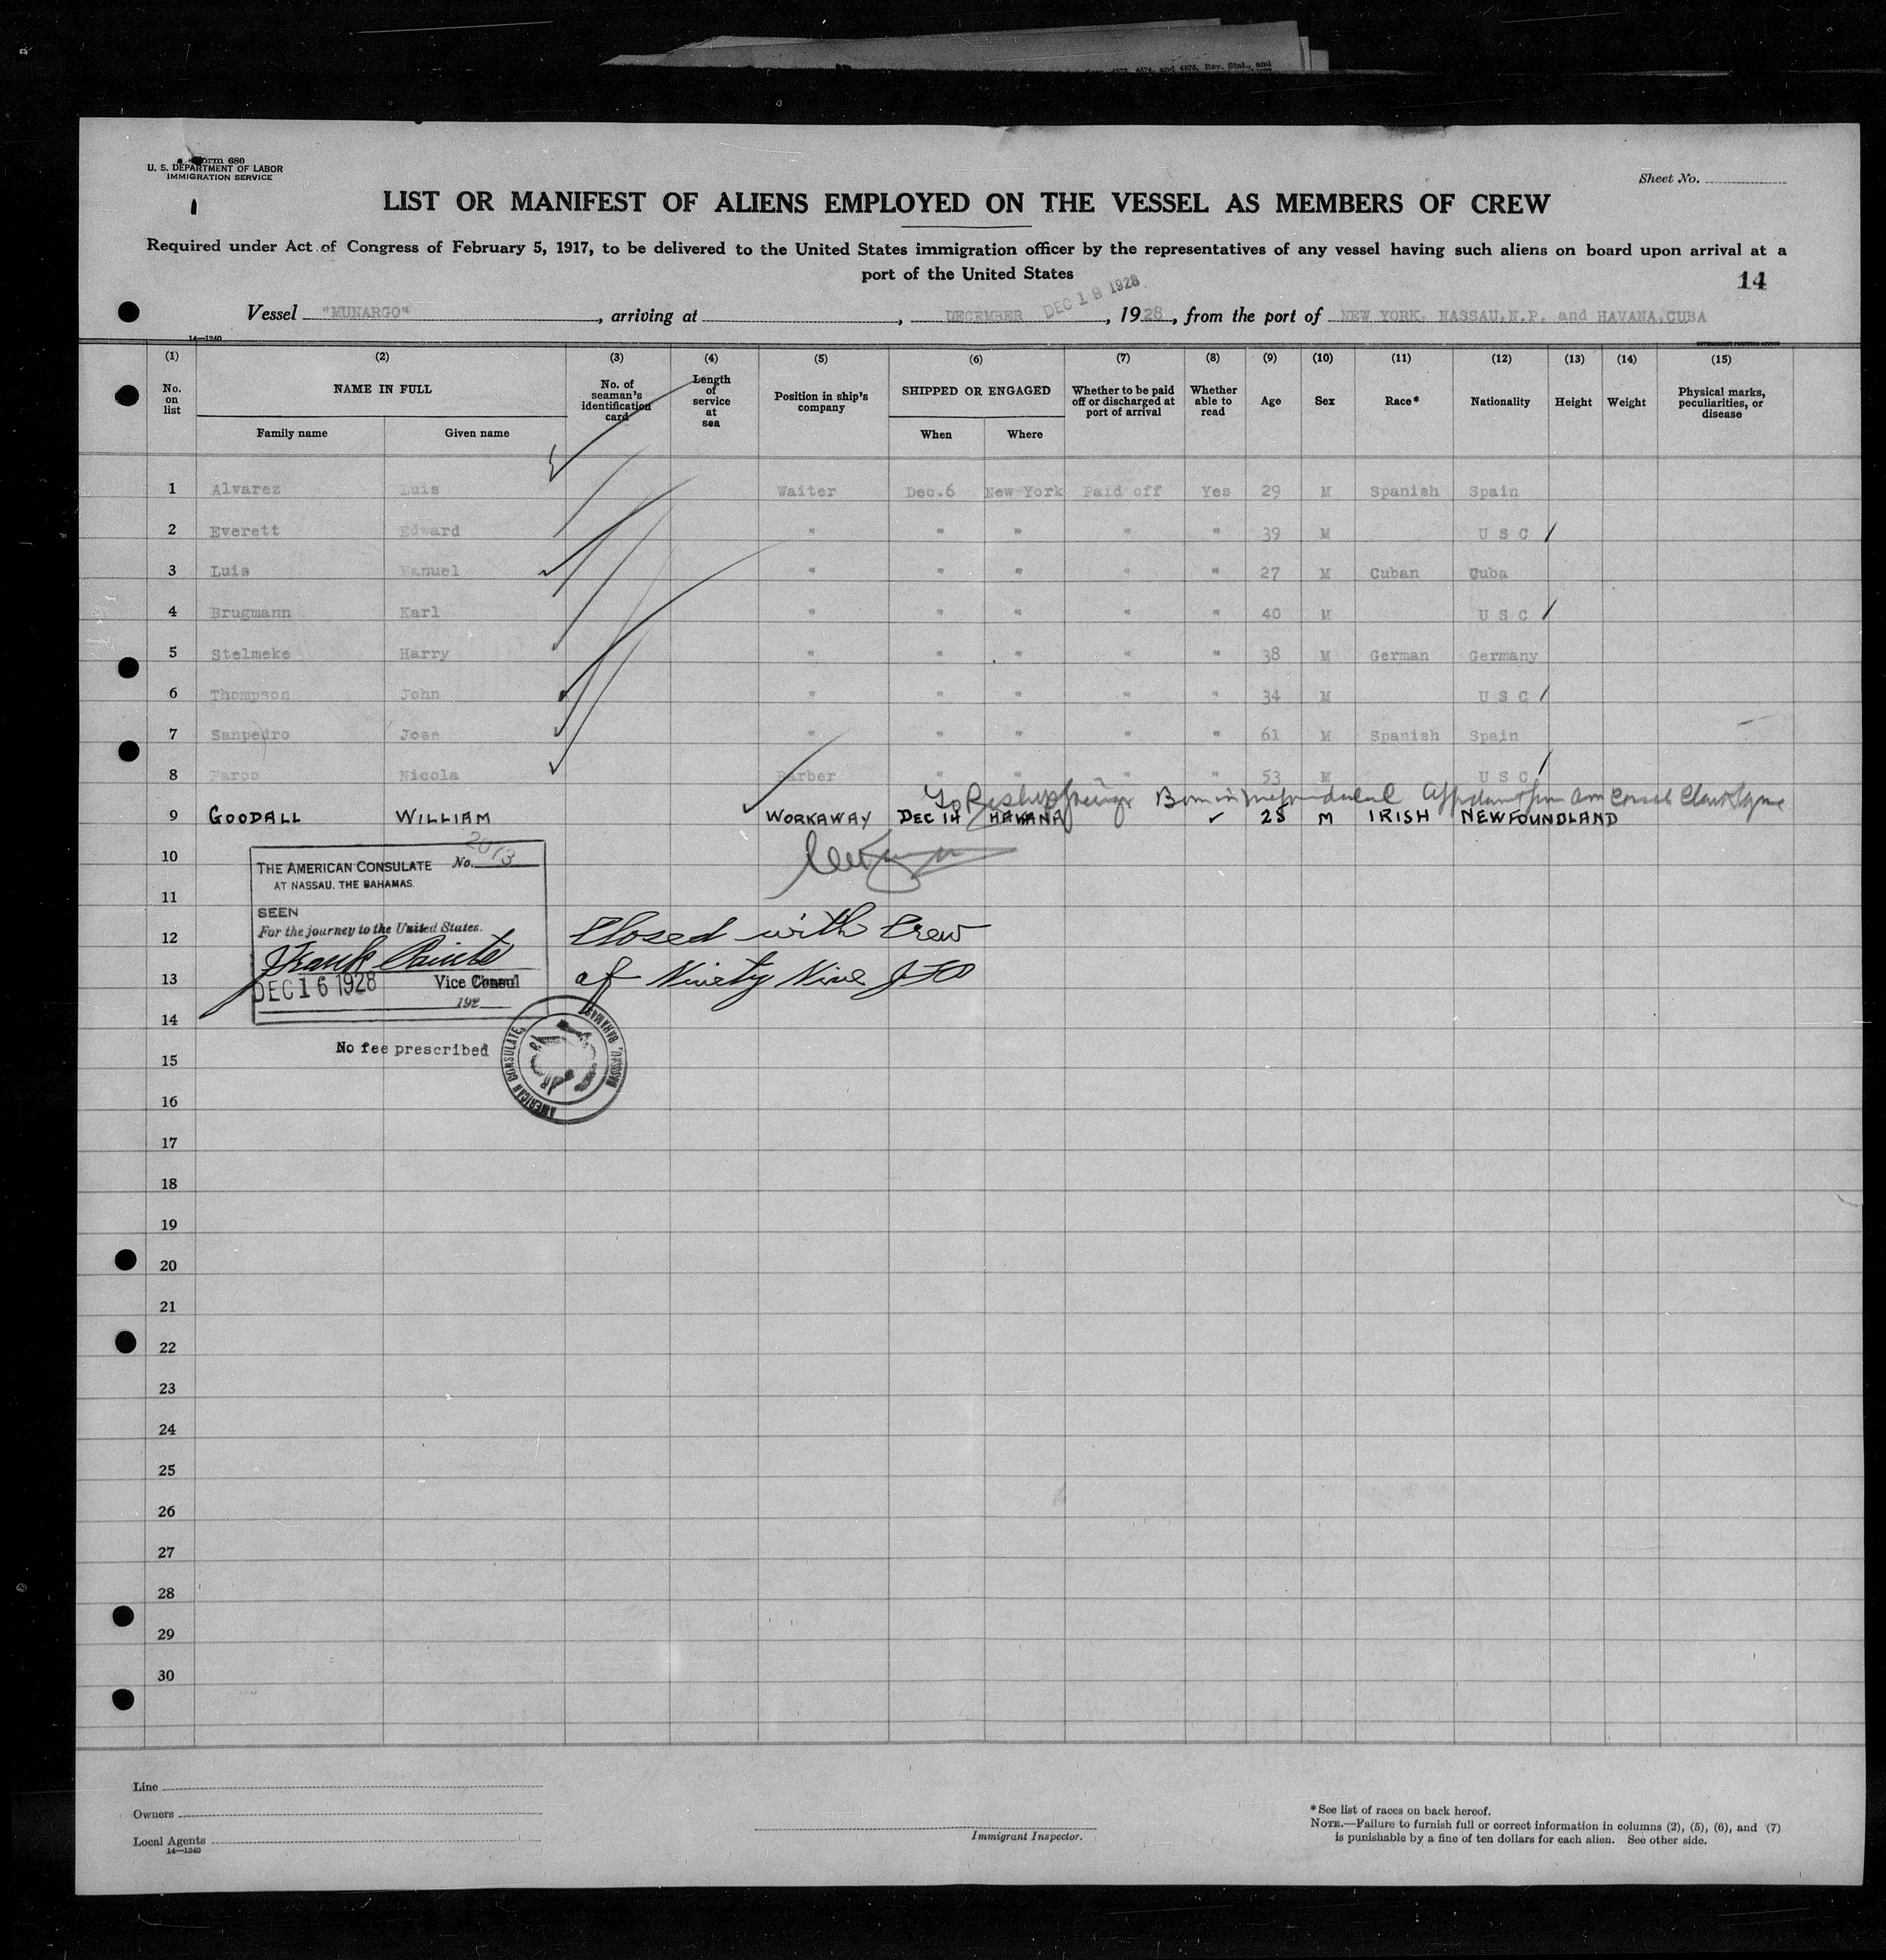 4573, 4574, and 4575, Rev. Stat., and
Form 680
U. S. DEPARTMENT OF LABOR
IMMIGRATION SERVICE
Sheet No.
LIST OR MANIFEST OF ALIENS EMPLOYED ON THE VESSEL AS MEMBERS OF CREW
Required under Act of Congress of February 5, 1917, to be delivered to the United States immigration officer by the representatives of any vessel having such aliens on board upon arrival at a
port of the United States
14
Vessel "MUNARGO", arriving at , DECEMBER DEC 19 1928, 1928, from the port of NEW YORK. NASSAU.N.P. and HAVANA.CUBA
14—1240
(1) (2) (3) (4) (5) (6) (7) (8) (9) (10) (11) (12) (13) (14) (15)
No. on list NAME IN FULL No. of seaman's identification card Length of service at sea Position in ship's company SHIPPED OR ENGAGED Whether to be paid off or discharged at port of arrival Whether able to read Age Sex Race* Nationality Height Weight Physical marks, peculiarities, or disease
Family name Given name When Where
1 Alvarez Luis Waiter Dec.6 New York Paid off Yes 29 M Spanish Spain
2 Everett Edward " " " " " 39 M U S C /
3 Luis Manuel " " " " " 27 M Cuban Cuba
4 Brugmann Karl " " " " " 40 M U S C /
5 Stelmeke Harry " " " " " 38 M German Germany
6 Thompson John " " " " " 34 M U S C /
7 Sanpedro Jose " " " " " 61 M Spanish Spain
8 Farco Nicola Barber " " " " 53 M U S C /
To Born in from Am Consul
9 GOODALL WILLIAM WORKAWAY DEC 14 HAVANA ✓ 25 M IRISH NEWFOUNDLAND
10
11
12
13
14
15
16
17
18
19
20
21
22
23
24
25
26
27
28
29
30
THE AMERICAN CONSULATE No. 2013
AT NASSAU, THE BAHAMAS.
SEEN
For the journey to the United States.
Frank
DEC 16 1928 Vice Consul
192
No fee prescribed
AMERICAN CONSULATE, NASSAU, BAHAMAS
Closed with Crew
of Ninety Nine
Line
Owners
Local Agents
14—1240
Immigrant Inspector.
*See list of races on back hereof.
NOTE.—Failure to furnish full or correct information in columns (2), (5), (6), and (7)
is punishable by a fine of ten dollars for each alien. See other side.